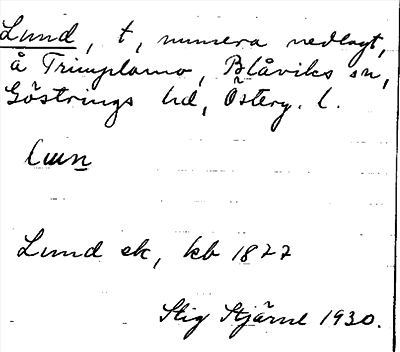 Lund, t, numera nedlagt,
å Trimplamo, Blåviks sn,
Göstrings hd, Österg. l.
luun
Lund ek, kb 1877
Stig Stjärne 1930.